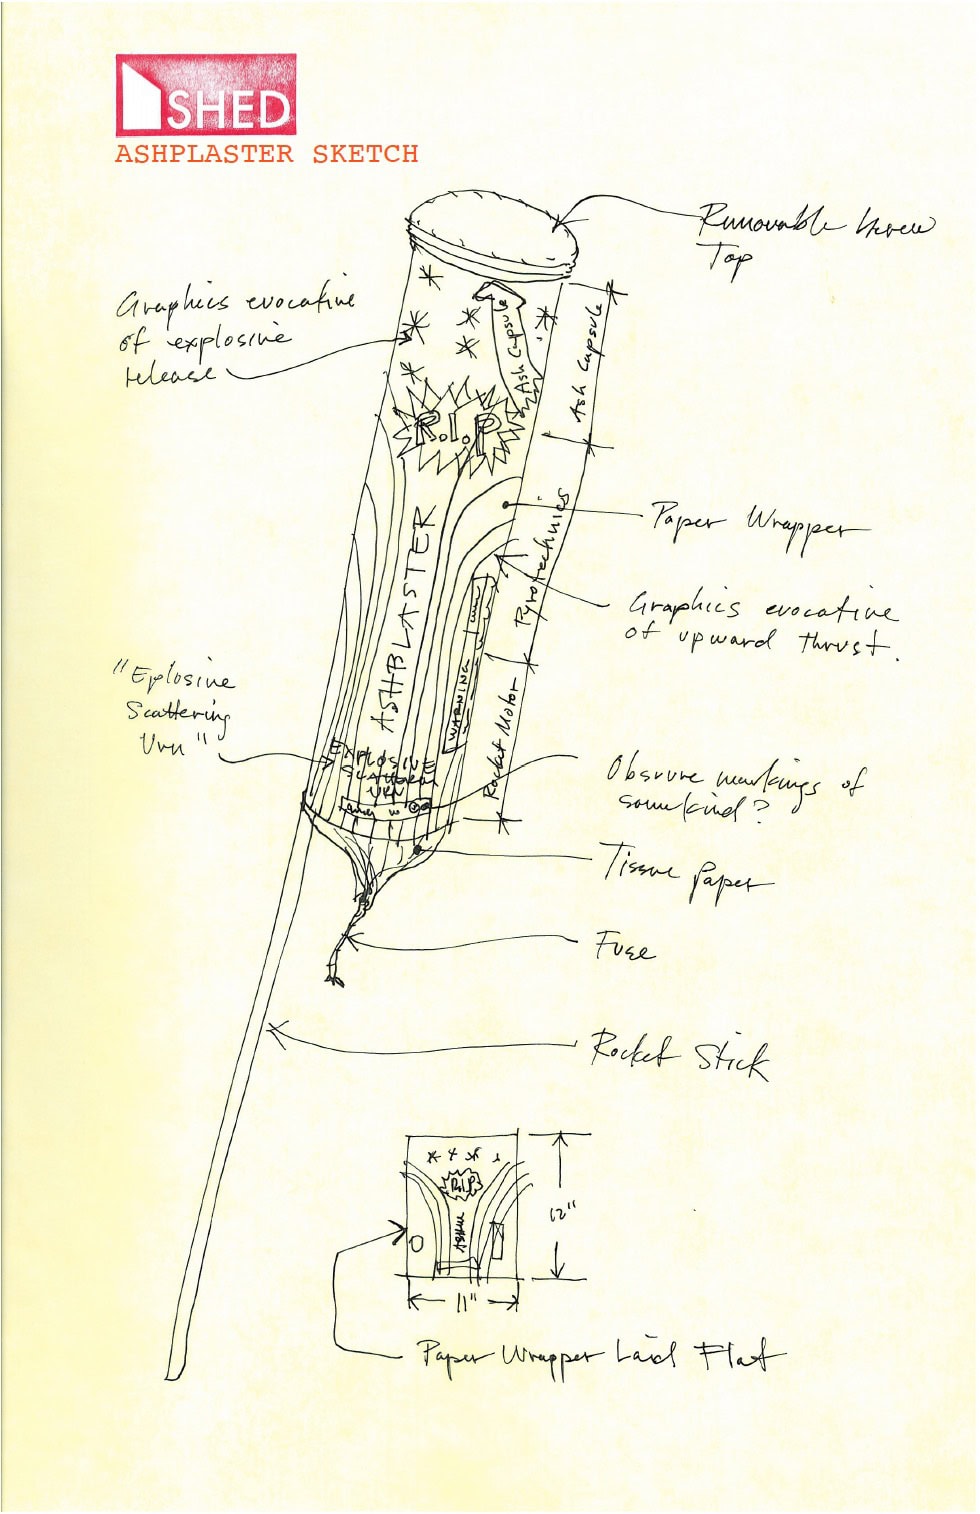 SHED
ASHPLASTER SKETCH
Removable Screw
Top
Graphics evocative
of explosive
release
Ash Capsule
Ash Capsule
R.I.P
Paper Wrapper
Pyrotechnics
Graphics evocative
of upward thrust.
ASHBLASTER
WARNING
"Eplosive
Scattering
Urn"
Rocket Motor
EXPLOSIVE
SCATTERING
URN
Obsvure markings of
somekind?
Tissue Paper
Fuse
Rocket Stick
RIP
12"
11"
Paper Wrapper Laid Flat